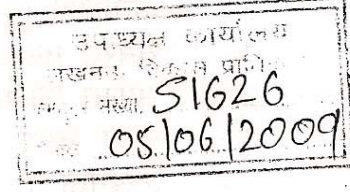 उपाध्यक्ष कार्यालय
लखनऊ विकास प्राधि
संख्या S1626
05/06/2009